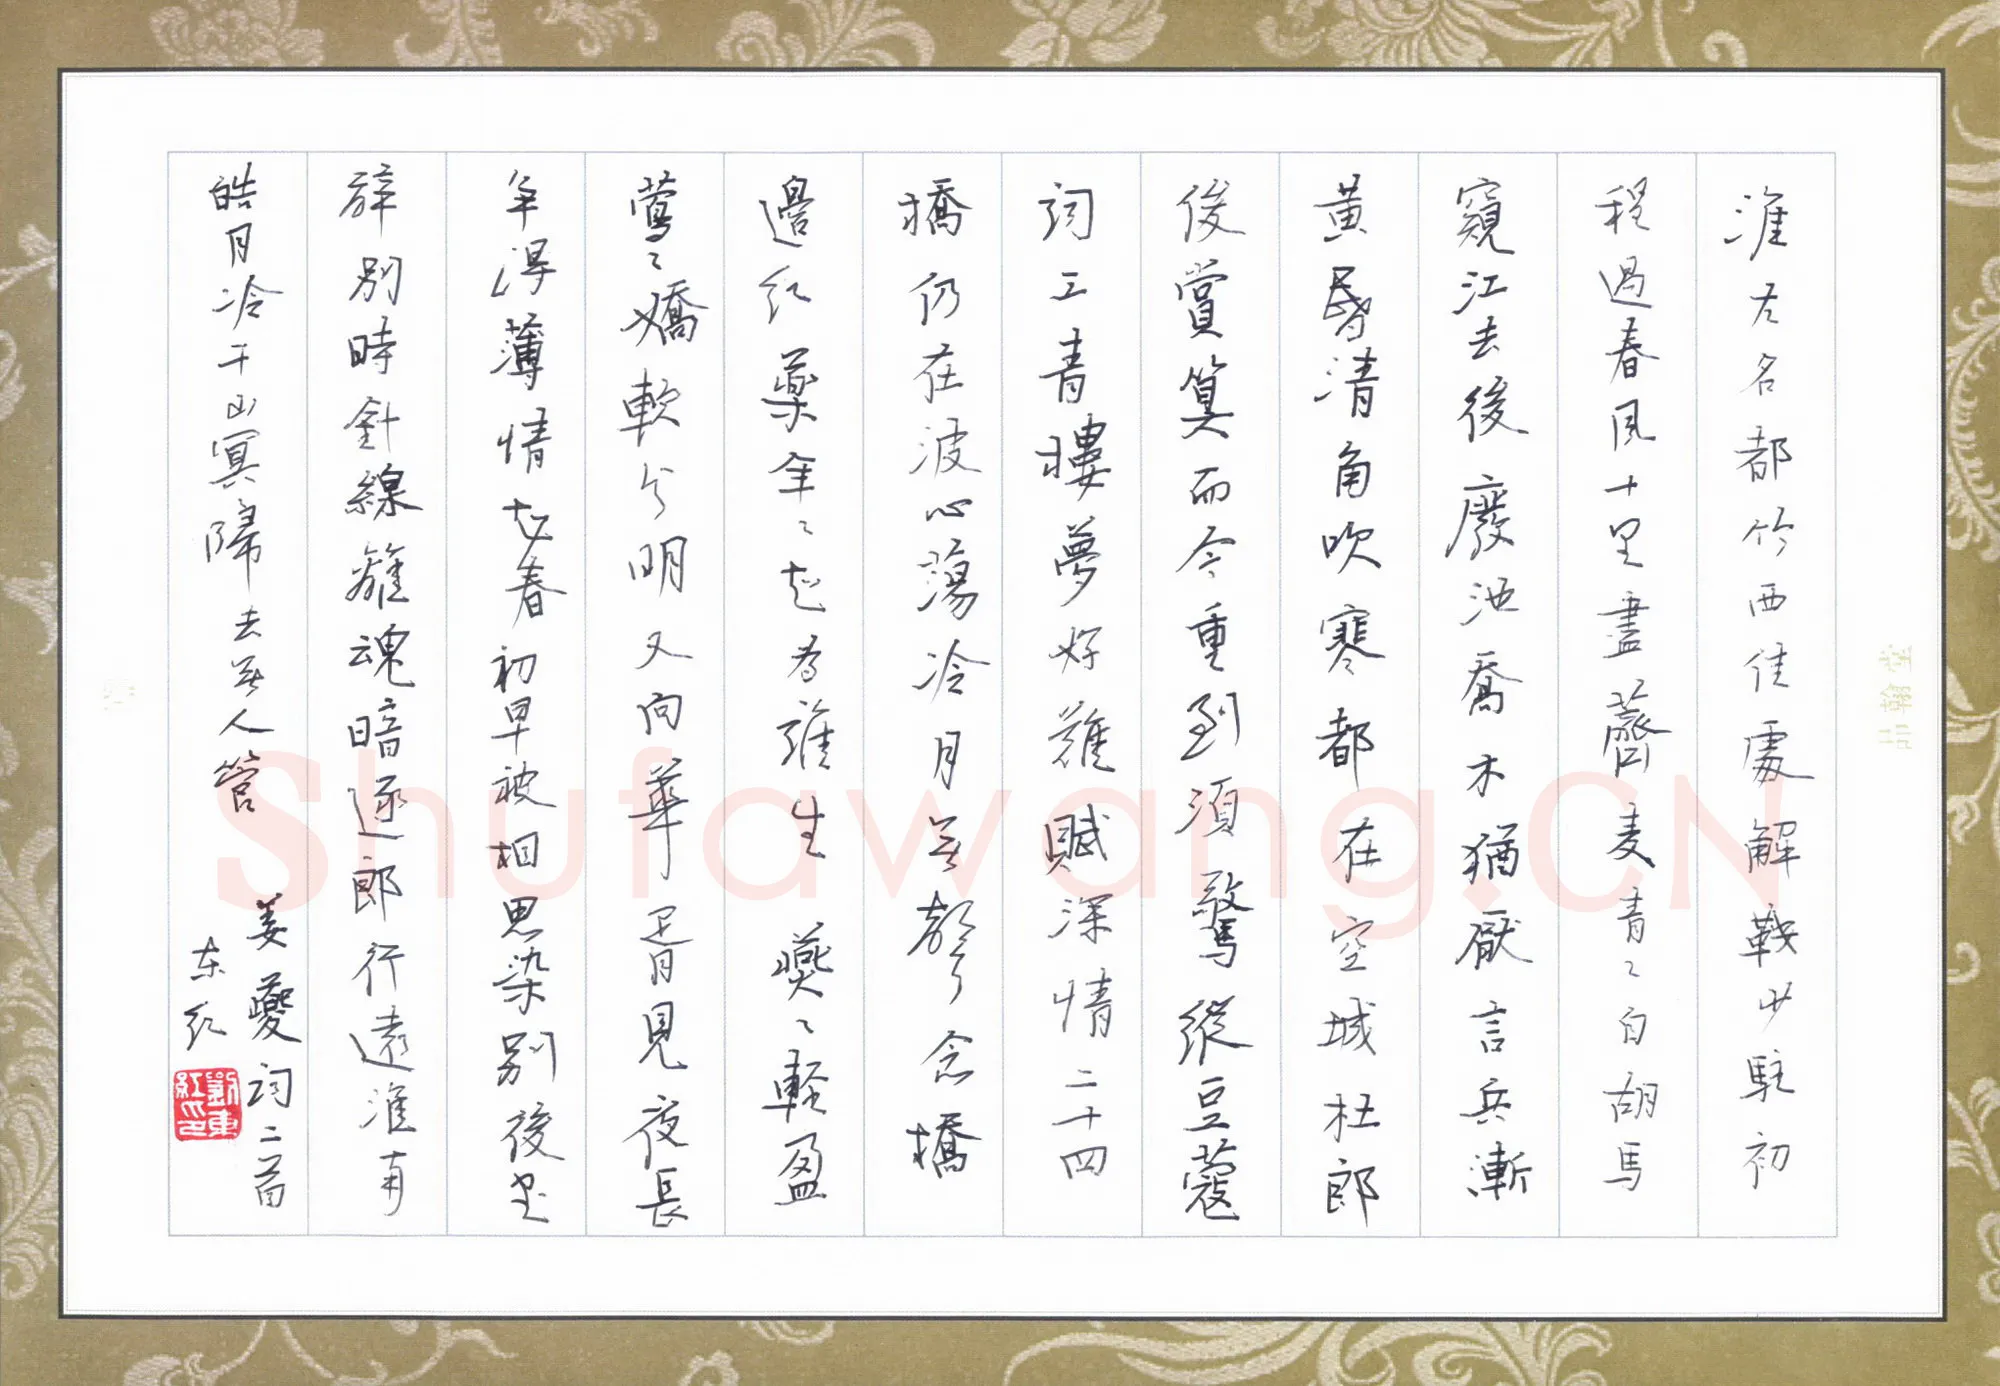 淮左名都竹西佳處解鞍少駐初
程過春風十里盡薺麦青〻自胡馬
窺江去後廢池喬木猶厭言兵漸
黃昏清角吹寒都在空城杜郎
俊賞算而今重到須驚縱豆蔻
詞工青樓夢好難賦深情二十四
橋仍在波心蕩冷月無聲念橋
邊紅藥年〻知為誰生 燕〻輕盈
鶯〻嬌軟分明又向華胥見夜長
争得薄情知春初早被相思染別後書
辭別時針線離魂暗逐郎行遠淮南
皓月冷千山冥歸去無人管
姜夔詞二首
东红
劉東紅印
品翰堂
Shufawang.CN